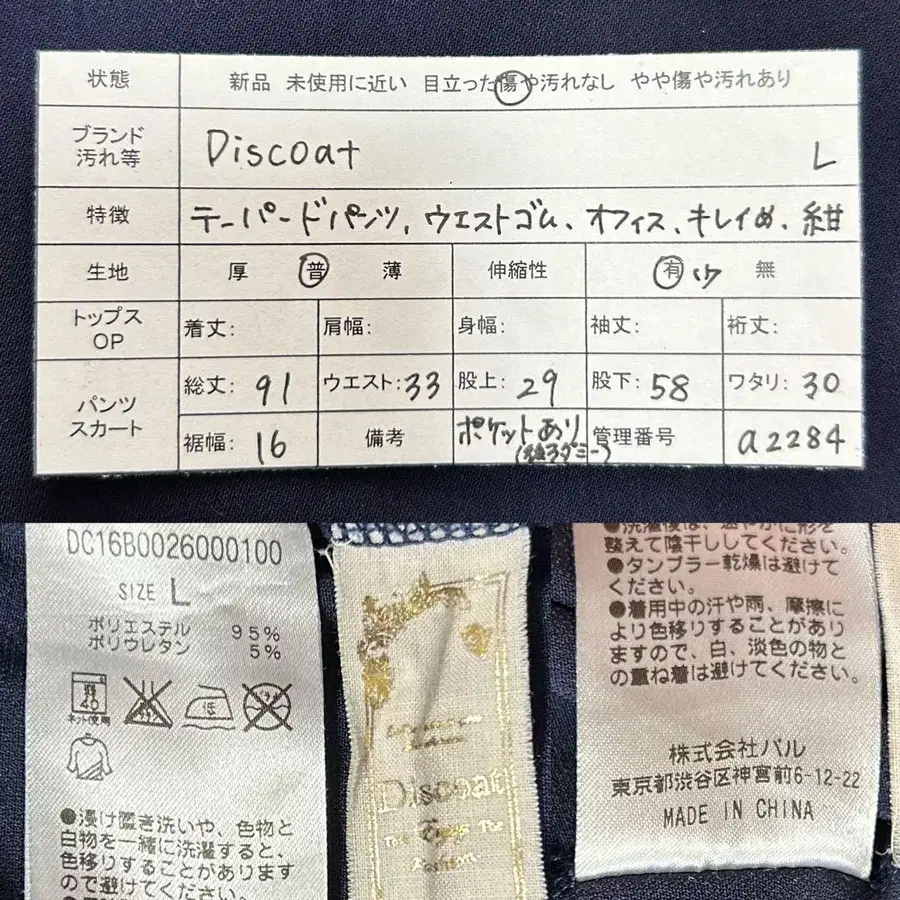 状態 新品 未使用に近い 目立った傷や汚れなし やや傷や汚れあり
ブランド 汚れ等 Discoat L
特徴 テーパードパンツ、ウエストゴム、オフィス、キレイめ、紺
生地 厚 普 薄 伸縮性 有 少 無
トップス OP 着丈: 肩幅: 身幅: 袖丈: 裄丈:
パンツ スカート 総丈: 91 ウエスト: 33 股上: 29 股下: 58 ワタリ: 30
裾幅: 16 備考 ポケットあり 管理番号 a2284
(後ろダミー)
DC16B0026000100
SIZE L
ポリエステル 95%
ポリウレタン 5%
40
低
ネット使用
●浸け置き洗いや、色物と
白物を一緒に洗濯すると、
色移りすることがあります
ので避けてください。
Discoat
The
The
Fashion
●洗濯後は、速やかに形を
整えて陰干ししてください。
●タンブラー乾燥は避けて
ください。
●着用中の汗や雨、摩擦に
より色移りすることがあり
ますので、白、淡色の物と
の重ね着は避けてください。
株式会社パル
東京都渋谷区神宮前6-12-22
MADE IN CHINA